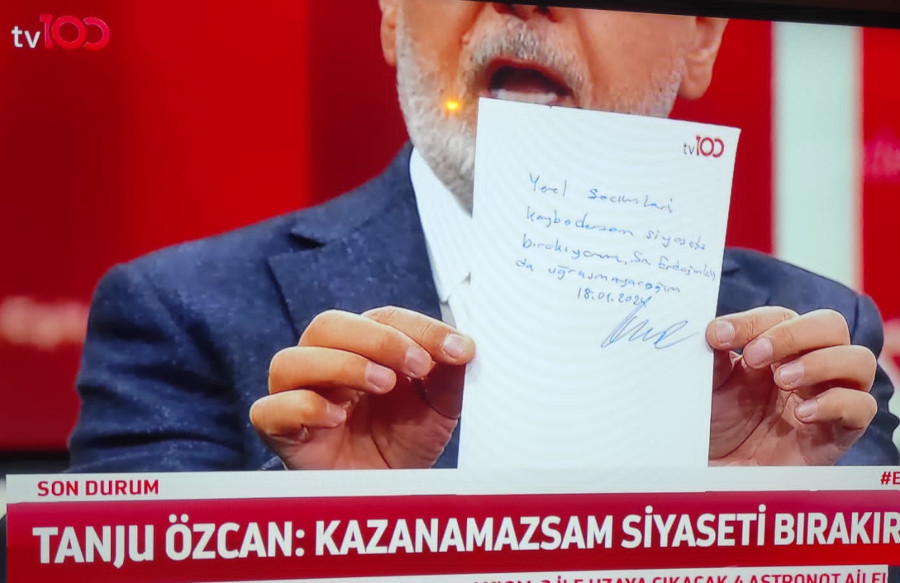 tv100
tv100
Yerel seçimleri
kaybedersem siyasete
bırakıyorum, Sn Erdoğanla
da uğraşmayacağım
18.01.2024
SON DURUM
#E
TANJU ÖZCAN: KAZANAMAZSAM SİYASETİ BIRAKIR
3 İLE UZAYA ÇIKACAK 4 ASTRONOT AİLEL